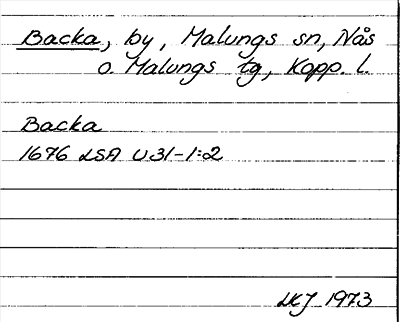 Backa, by, Malungs sn, Nås
o. Malungs tg, Kopp. l.
Backa
1676 LSA U31-1:2
LKJ 1973